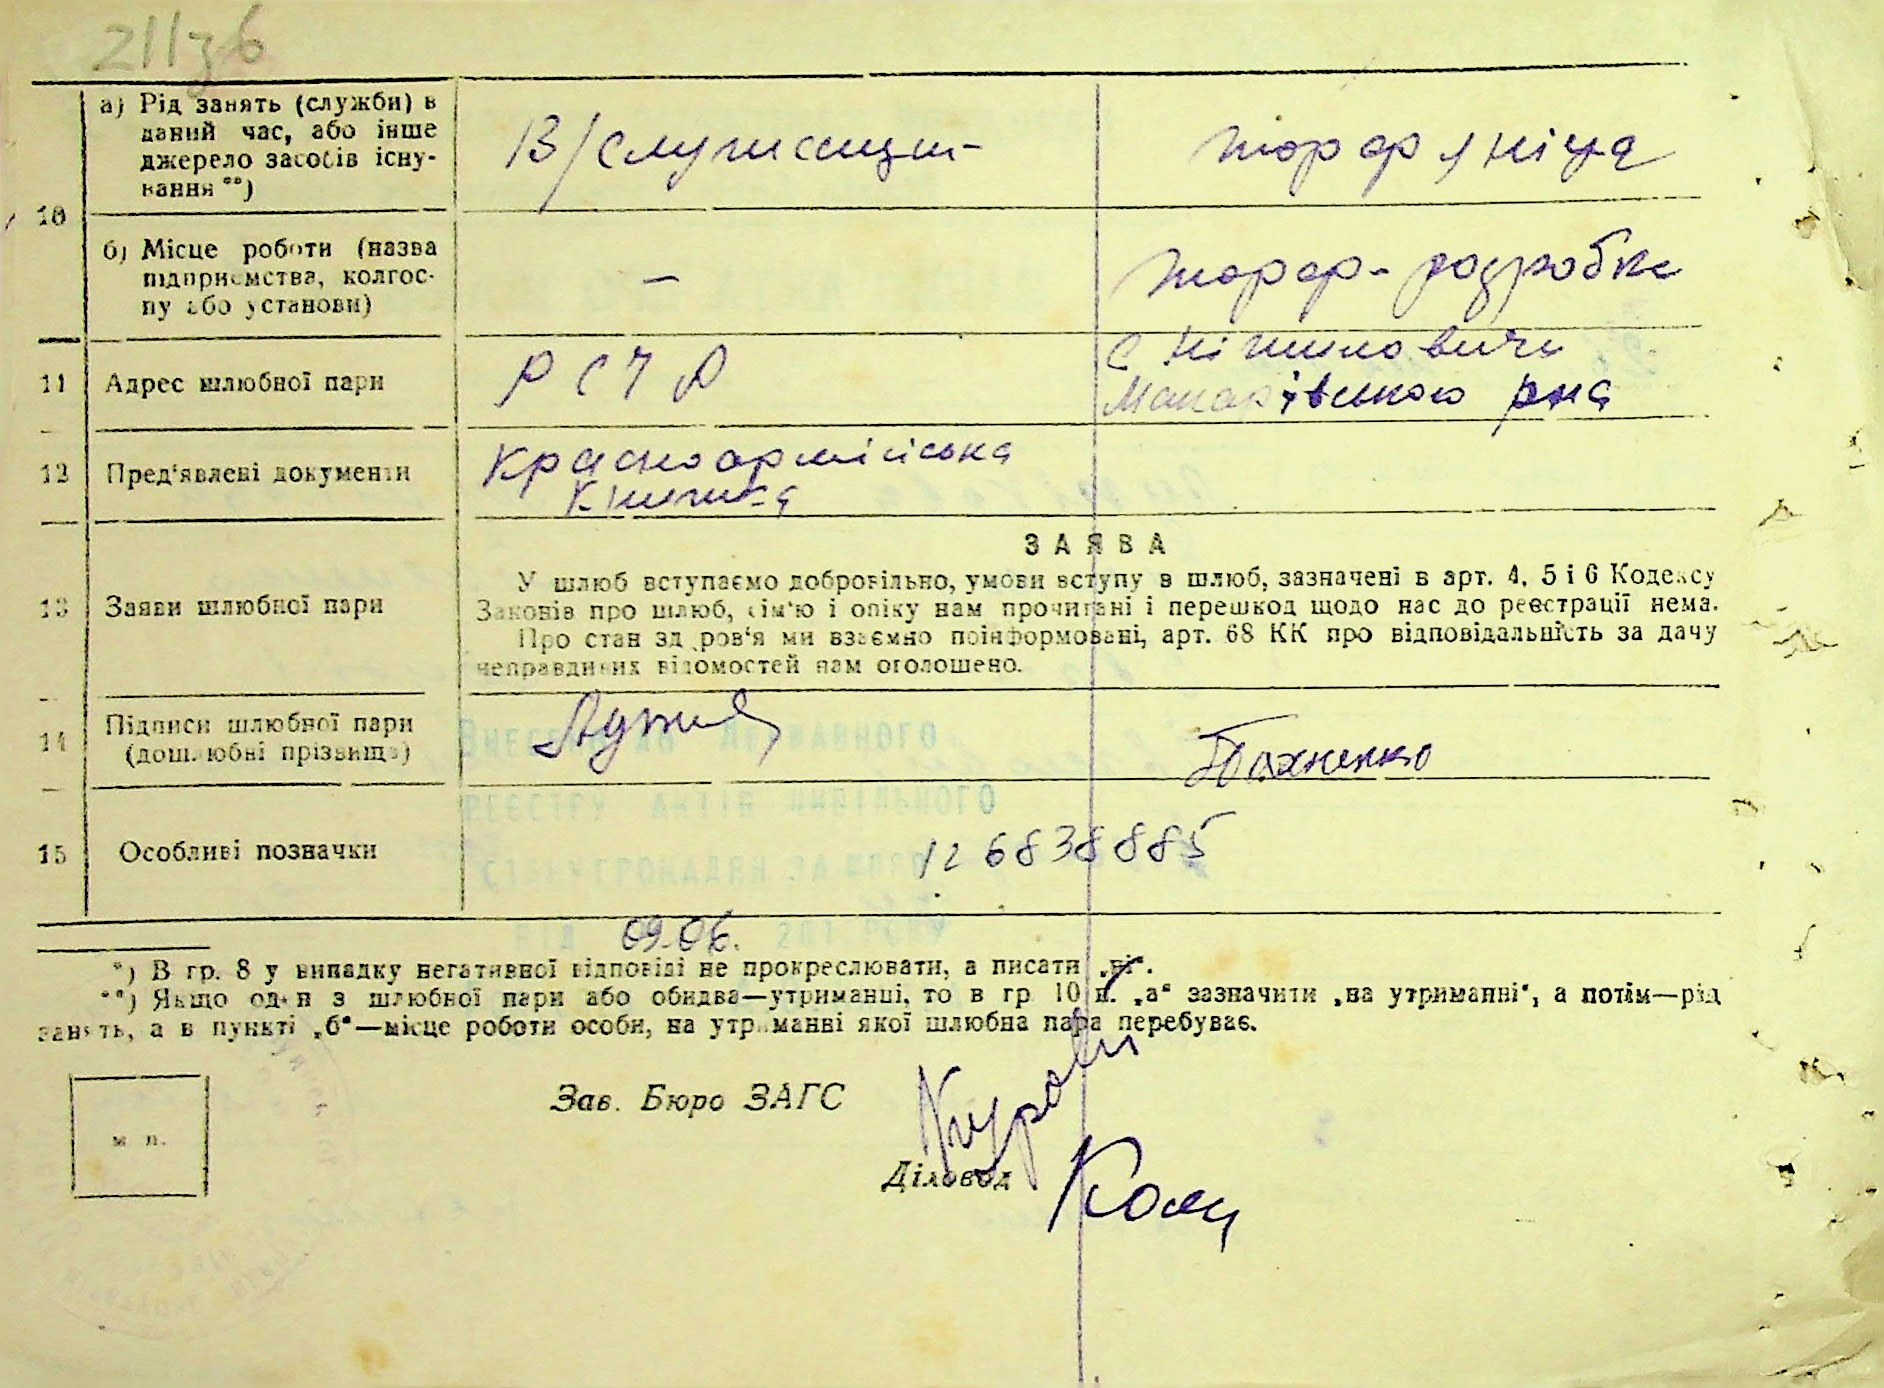 211зб
а) Рід занять (служби) в
даний час, або інше
джерело засобів існу-
вання **)
В/служащи-
торфяніца
10
б) Місце роботи (назва
підприємства, колгос-
пу або установи)
–
торф-розробка
11
Адрес шлюбної пари
Р С Ч А
с
Макарівського рна
12
Пред'явлені документи
Красноармійська
Книжка
ЗАЯВА
13
Заяви шлюбної пари
У шлюб вступаємо добровільно, умови вступу в шлюб, зазначені в арт. 4, 5 і 6 Кодексу
Законів про шлюб, сім'ю і опіку нам прочитані і перешкод щодо нас до реєстрації нема.
Про стан здоров'я ми взаємно поінформовані, арт. 68 КК про відповідальність за дачу
неправдивих відомостей нам оголошено.
14
Підписи шлюбної пари
(дошлюбні прізвища)
Пахненко
Внесено до Державного
реєстру актів цивільного
15
Особливі позначки
126838885
стану громадян за
від 09.06. 201 року
*) В гр. 8 у випадку негативної відповіді не прокреслювати, а писати „ні".
**) Якщо один з шлюбної пари або обидва—утриманці, то в гр. 10 п. „а" зазначити „на утриманні", а потім—рід
занять, а в пункті „б"—місце роботи особи, на утриманні якої шлюбна пара перебуває.
Зав. Бюро ЗАГС
м п.
Діловод